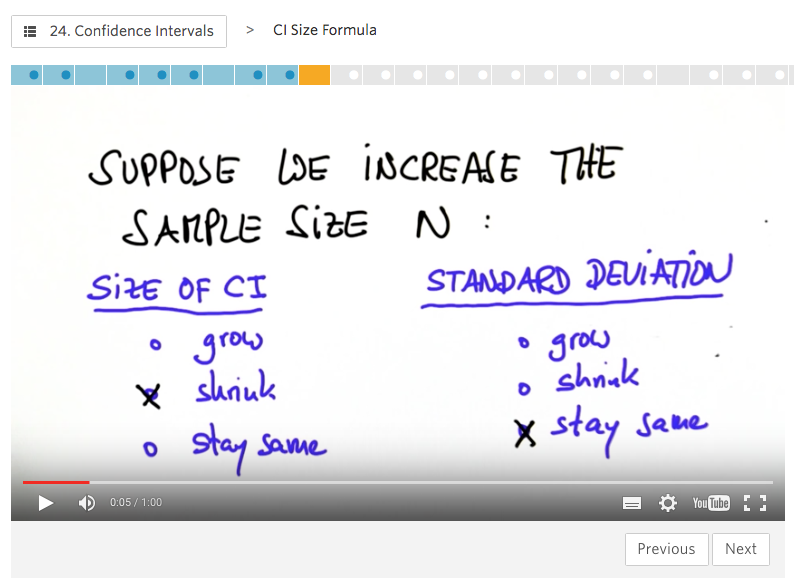 24. Confidence Intervals > CI Size Formula
SUPPOSE WE INCREASE THE
SAMPLE SIZE N :
SIZE OF CI
grow
shrink
stay same
STANDARD DEVIATION
grow
shrink
stay same
0:05 / 1:00
YouTube
Previous Next